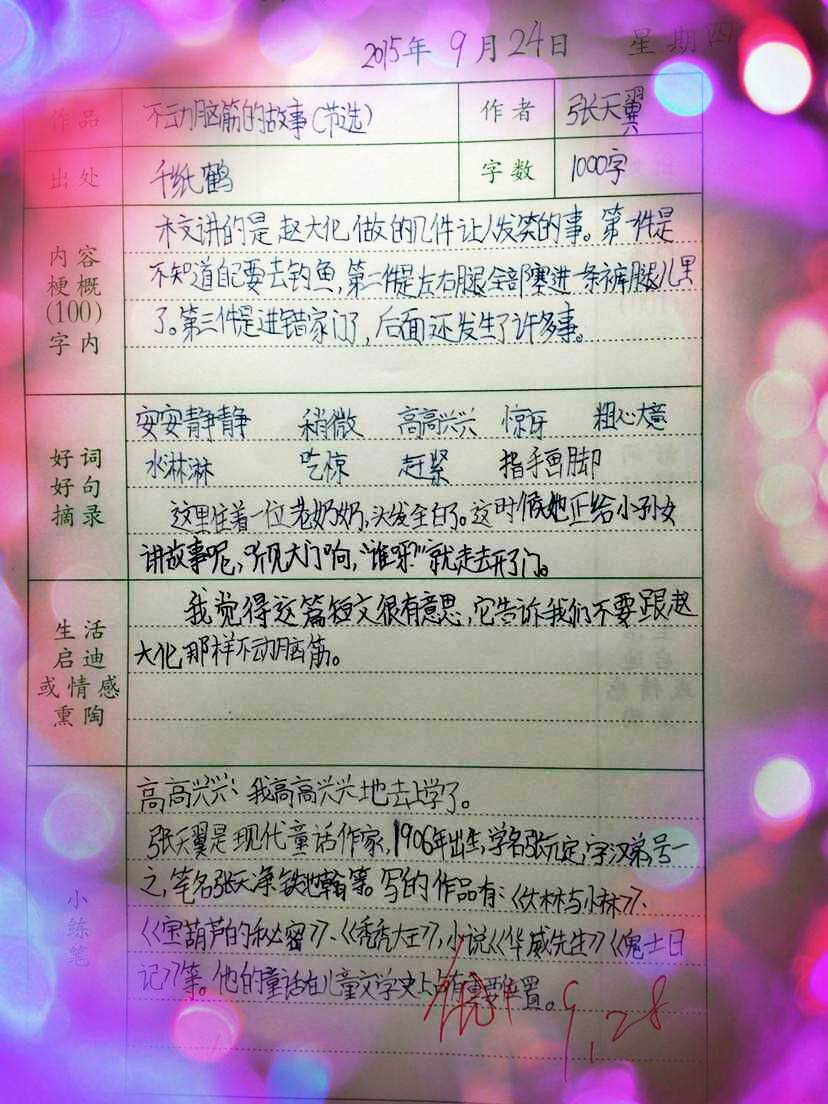 2015年 9月24日 星期四
作品 不动脑筋的故事(节选) 作者 张天翼
出处 千纸鹤 字数 1000字
内容梗概(100)字内
本文讲的是赵大化做的几件让人发笑的事。第一件是
不知道自己要去钓鱼,第二件是左右腿全部塞进一条裤腿儿里
了。第三件是进错家门了,后面还发生了许多事。
好词好句摘录
安安静静 稍微 高高兴兴 惊讶 粗心大意
水淋淋 吃惊 赶紧 指手画脚
这里住着一位老奶奶,头发全白了。这时候她正给小孙女
讲故事呢,听见大门响,“谁呀!”就走去开了门。
生活启迪或情感熏陶
我觉得这篇短文很有意思,它告诉我们不要跟赵
大化那样不动脑筋。
小练笔
高高兴兴:我高高兴兴地去上学了。
张天翼是现代童话作家,1906年出生,学名张元定,字汉弟,号一
之,笔名张天净、铁池翰等。写的作品有:《大林与小林》、
《宝葫芦的秘密》、《秃秃大王》,小说《华威先生》《鬼土日
记》等。他的童话在儿童文学史上占有重要位置。
9.28